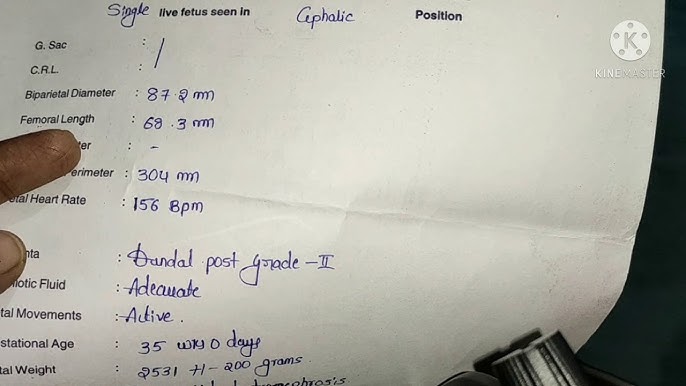 Single live fetus seen in Cephalic Position
G. Sac :
C.R.L. :
Biparietal Diameter : 87.2 mm
Femoral Length : 68.3 mm
ter : -
erimeter : 304 mm
etal Heart Rate : 156 Bpm
nta : Fundal post grade - II
iotic Fluid : Adequate
tal Movements : Active.
stational Age : 35 wks 0 days
tal Weight : 2531 +/- 200 grams.
KINEMASTER